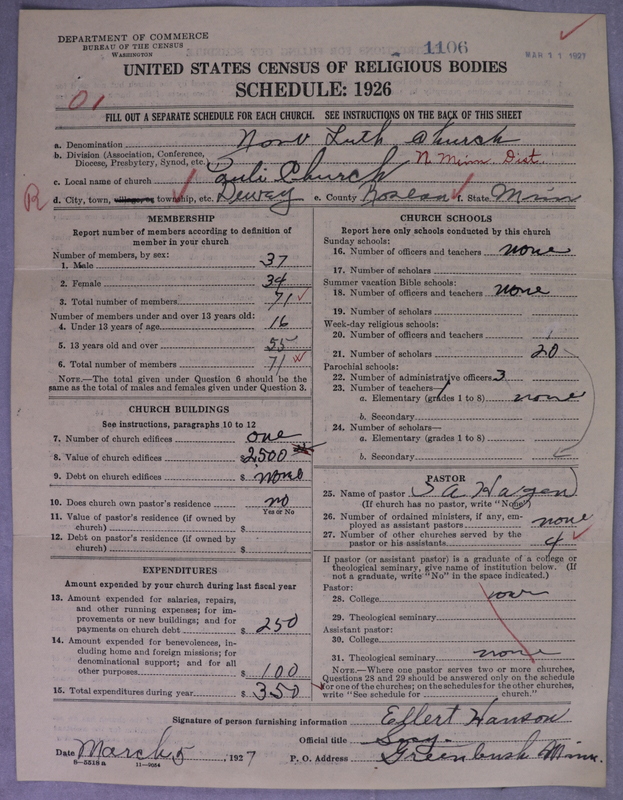 DEPARTMENT OF COMMERCE
BUREAU OF THE CENSUS
WASHINGTON
1106
MAR 11 1927
UNITED STATES CENSUS OF RELIGIOUS BODIES
SCHEDULE: 1926
01
FILL OUT A SEPARATE SCHEDULE FOR EACH CHURCH. SEE INSTRUCTIONS ON THE BACK OF THIS SHEET
a. Denomination Norw Luth Church
b. Division (Association, Conference, Diocese, Presbytery, Synod, etc.) N. Minn. Dist.
c. Local name of church Pauli Church
R d. City, town, village, or township, etc. Dewey e. County Roseau f. State Minn
MEMBERSHIP
Report number of members according to definition of
member in your church
Number of members, by sex:
1. Male 37
2. Female 34
3. Total number of members 71
Number of members under and over 13 years old:
4. Under 13 years of age 16
5. 13 years old and over 55
6. Total number of members 71
NOTE.—The total given under Question 6 should be the
same as the total of males and females given under Question 3.
CHURCH BUILDINGS
See instructions, paragraphs 10 to 12
7. Number of church edifices one
8. Value of church edifices $2500
9. Debt on church edifices $ none
10. Does church own pastor's residence? no
Yes or No
11. Value of pastor's residence (if owned by
church) $
12. Debt on pastor's residence (if owned by
church) $
EXPENDITURES
Amount expended by your church during last fiscal year
13. Amount expended for salaries, repairs,
and other running expenses; for im-
provements or new buildings; and for
payments on church debt $ 250
14. Amount expended for benevolences, in-
cluding home and foreign missions; for
denominational support; and for all
other purposes $ 100
15. Total expenditures during year $ 350
CHURCH SCHOOLS
Report here only schools conducted by this church
Sunday schools:
16. Number of officers and teachers none
17. Number of scholars
Summer vacation Bible schools:
18. Number of officers and teachers none
19. Number of scholars
Week-day religious schools:
20. Number of officers and teachers 1
21. Number of scholars 20
Parochial schools:
22. Number of administrative officers 3
23. Number of teachers—
a. Elementary (grades 1 to 8) none
b. Secondary
24. Number of scholars—
a. Elementary (grades 1 to 8)
b. Secondary
PASTOR
25. Name of pastor S A Hagen
(If church has no pastor, write "None")
26. Number of ordained ministers, if any, em-
ployed as assistant pastors none
27. Number of other churches served by the
pastor or his assistants 4
If pastor (or assistant pastor) is a graduate of a college or
theological seminary, give name of institution below. (If
not a graduate, write "No" in the space indicated.)
Pastor:
28. College
29. Theological seminary
Assistant pastor:
30. College
31. Theological seminary none
NOTE.—Where one pastor serves two or more churches,
Questions 28 and 29 should be answered only on the schedule
for one of the churches; on the schedules for the other churches,
write "See schedule for church."
Signature of person furnishing information Ellert Hanson
Official title Secy.
Date March 5, 1927 P. O. Address Greenbush Minn.
8—5518a 11—9054